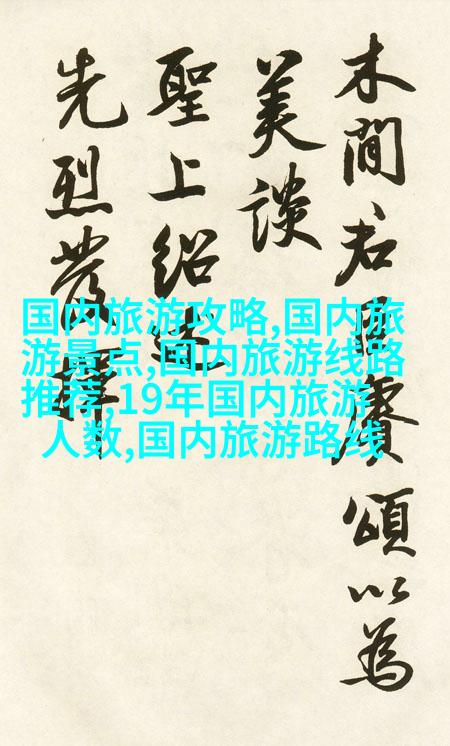 木間君臣賡頌以為
美談
聖上紹
先烈發
国内旅游攻略,国内旅
游景点,国内旅游线路
推荐,19年国内旅游
人数,国内旅游路线